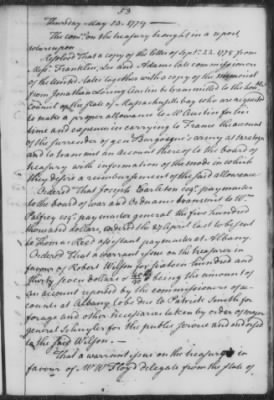 53
Thursday May 13. 1779
The comee. on the treasury brought in a report
whereupon
Resolved That a copy of the letter of Sept. 22. 1778 from
Messrs. Franklin, Lee and Adams late commissioners
of the United States together with a copy of the memorial
from Jonathan Loring Austin be transmitted to the honble.
council of the state of Massachusetts bay who are requested
to make a proper allowance to Mr Austin for his
time and expences in carrying to France the account
of the surrender of Genl Burgoyne's army at Saratoga
and to transmit an account thereof to the board of
treasury with information of the mode in which
they desire a reimbursement of the said allowance
Ordered That Joseph Carleton esqr. paymaster
to the board of war and Ordnance transmit to Wm.
Palfrey esqr. paymaster general the five hundred
thousand dollars, ordered the 29 April last to be sent
to Thomas Reed assistant paymaster at Albany.
Ordered That a warrant issue on the treasurer in
favour of Robert Wilson for sixteen hundred and
thirty seven dollars being the amount of
an account reported by the commissioners of ac-
counts at Albany to be due to Patrick Smith for
forage and other necessaries taken by order of major
general Schuyler for the public service and endorsed
to the said Wilson.
That a warrant issue on the treasurer in
favour of Mr W Floyd delegate from the state of